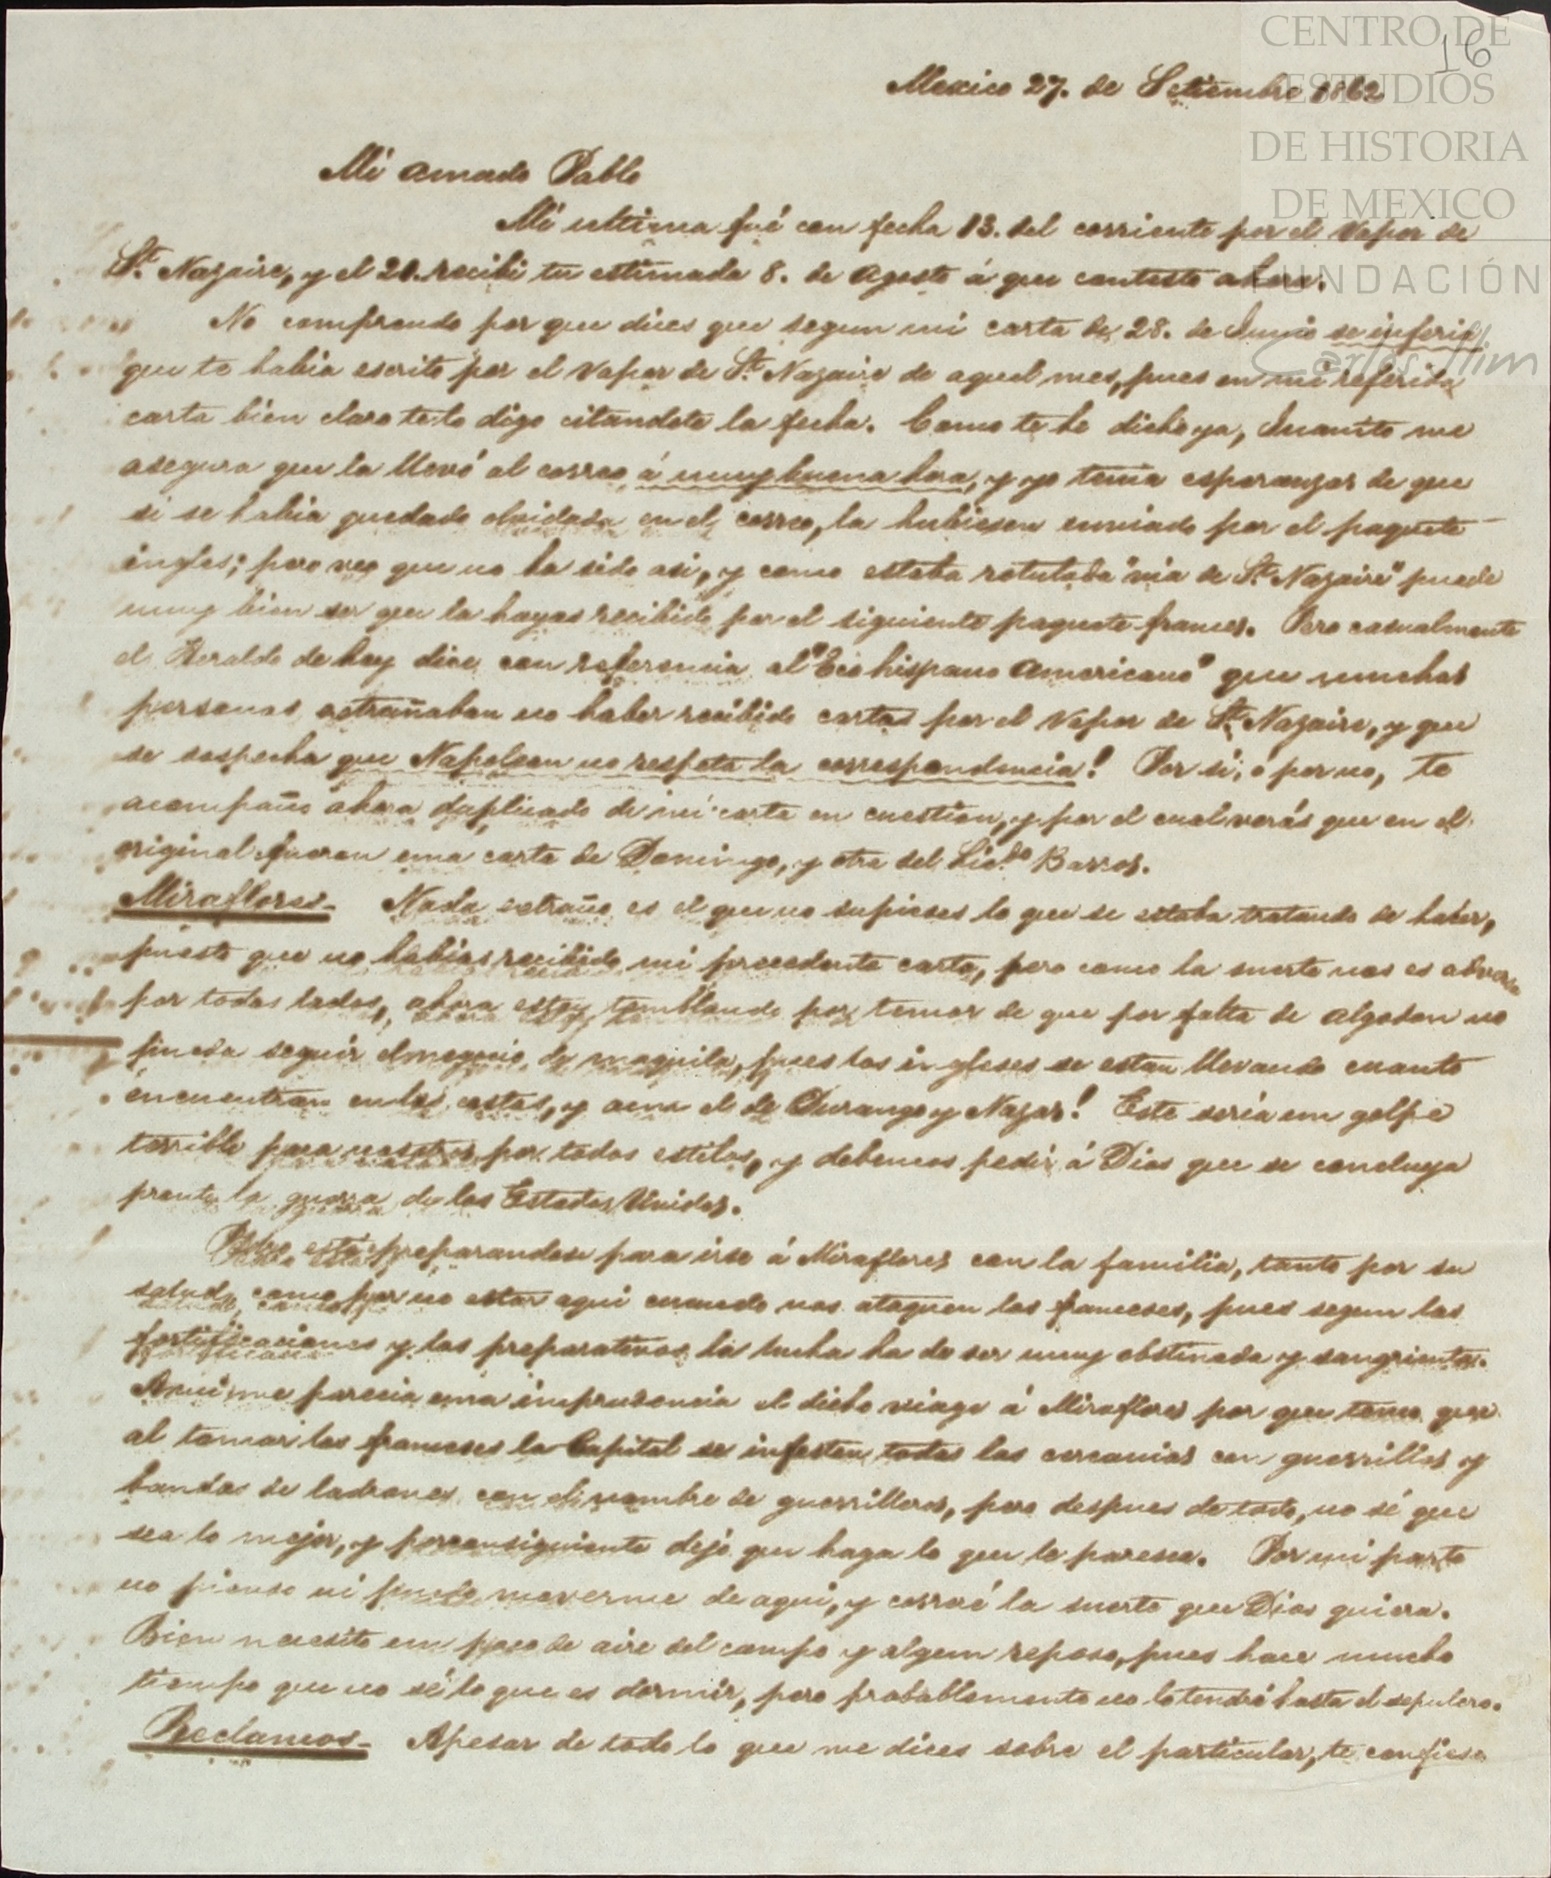 CENTRO DE
ESTUDIOS
DE HISTORIA
DE MEXICO
FUNDACIÓN
Carlos Slim
16
Mexico 27. de Setiembre 1862
Mi amado Pablo
Mi ultima fué con fecha 13. del corriente por el Vapor de
St. Nazaire, y el 20. recibí tu estimada 8. de Agosto á que contesto ahora.
No comprendo por que dices que segun mi carta de 28. de Junio se inferia
que te habia escrito por el Vapor de St. Nazaire de aquel mes, pues en mi referida
carta bien claro te lo digo citandote la fecha. Como te he dicho ya, Juanito me
asegura que la llevó al correo á muy buena hora, y yo tenia esperanzas de que
si se habia quedado olvidada en el correo, la hubiesen enviado por el paquete
ingles; pero veo que no ha sido asi, y como estaba rotulada "via de St. Nazaire" puede
muy bien ser que la hayas recibido por el siguiente paquete frances. Pero casualmente
el Heraldo de hoy dice con referencia al "Eco hispano Americano" que muchas
personas estrañaban no haber recibido cartas por el Vapor de St. Nazaire, y que
se sospecha que Napoleon no respeta la correspondencia! Por sí, ó por no, te
acompaño ahora duplicado de mi carta en cuestion, y por el cual verás que en el
original fueron una carta de Domingo, y otra del Licdo. Barros.
Miraflores- Nada estraño es el que no supieses lo que se estaba tratando de hacer,
puesto que no habias recibido mi precedente carta, pero como la suerte nos es adversa
por todos lados, ahora estoy temblando por temor de que por falta de algodon no
pueda seguir el negocio de maquila, pues los ingleses se estan llevando cuanto
encuentran en las costas, y aun el de Durango y Nazas! Este sería un golpe
terrible para nosotros por todos estilos, y debemos pedir á Dios que se concluya
pronto la guerra de los Estados Unidos.
está preparandose para irse á Miraflores con la familia, tanto por su
salud, como por no estar aqui cuando nos ataquen los franceses, pues segun las
fortificaciones y los preparativos la lucha ha de ser muy obstinada y sangrienta.
A mi me parecia una imprudencia el dicho viage á Miraflores por que temo que
al tomar los franceses la Capital se infesten todas las cercanias con guerrillas y
bandas de ladrones con el nombre de guerrilleros, pero despues de todo, no sé que
sea lo mejor, y por consiguiente dejo que haga lo que le paresca. Por mi parte
no pienso ni puedo moverme de aqui, y correré la suerte que Dios quiera.
Bien necesito un poco de aire del campo y algun reposo, pues hace mucho
tiempo que no sé lo que es dormir, pero probablemente no lo tendré hasta el sepulcro.
Reclamos- Apesar de todo lo que me dices sobre el particular, te confieso